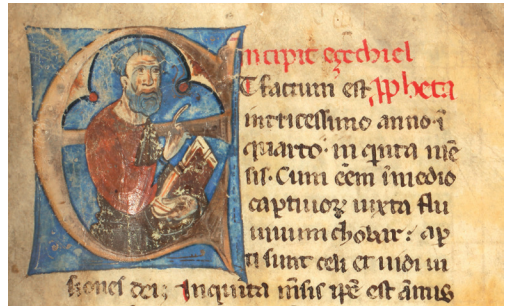 Incipit ezechiel
Et factum est ppheta
intricessimo anno· i
quarto· in quita mē
sis· Cum eēm ī medio
captiuoꝝ iuxta flu
uium chobar: ap
ti sunt celi et uidi ui
siones dei; Inquita mēsis ipē est annus